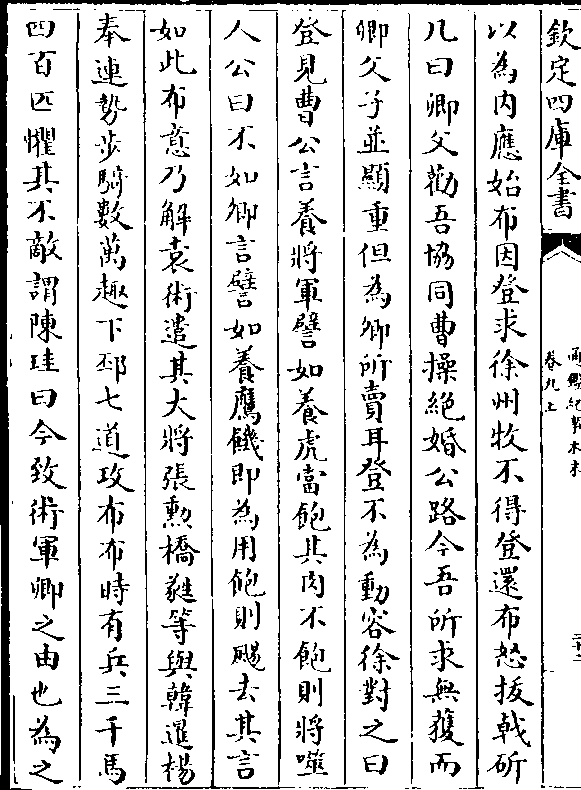 欽定四庫全書
通鑑紀事本末
卷九上
以為内應始布因登求徐州牧不得登還布怒拔戟斫
几曰卿父勸吾協同曹操絶婚公路今吾所求無獲而
卿父子並顯重但為卿所賣耳登不為動容徐對之曰
登見曹公言養將軍譬如養虎當飽其肉不飽則將噬
人公曰不如卿言譬如養鷹饑即為用飽則颺去其言
如此布意乃解袁術遣其大將張勲橋蕤等與韓暹楊
奉連勢步騎數萬趣下邳七道攻布布時有兵三千馬
四百匹懼其不敵謂陳珪曰今致術軍卿之由也為之